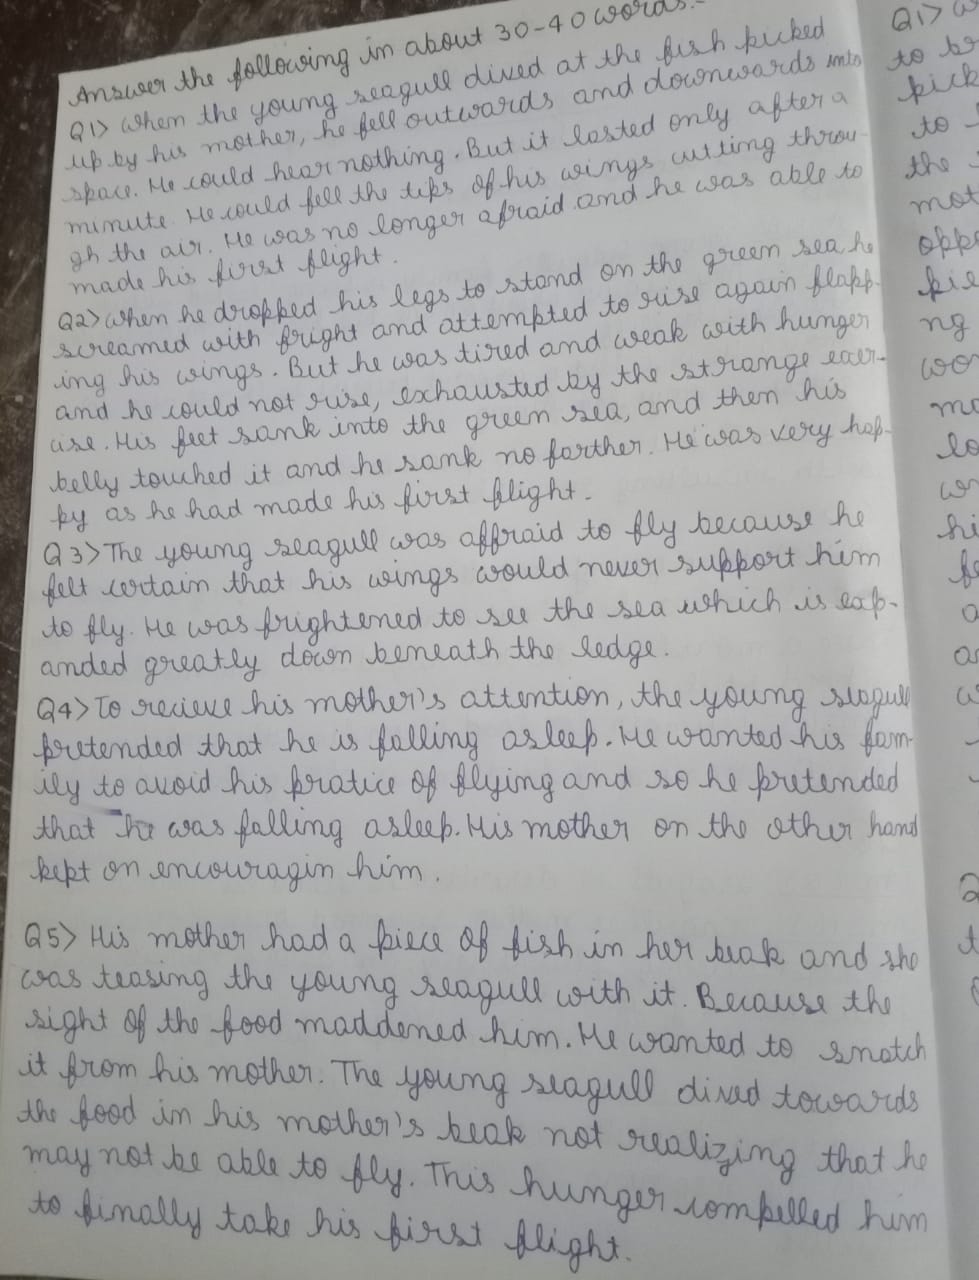 Answer the following in about 30-40 words.-
Q1> When the young seagull dived at the fish picked
up by his mother, he fell outwards and downwards into
space. He could hear nothing. But it lasted only after a
minute. He could fell the tips of his wings cutting throu-
gh the air. He was no longer afraid and he was able to
made his first flight.
Q2> When he dropped his legs to stand on the green sea he
screamed with fright and attempted to rise again flapp-
ing his wings. But he was tired and weak with hunger
and he could not rise, exhausted by the strange exer-
cise. His feet sank into the green sea, and then his
belly touched it and he sank no farther. He was very hap-
py as he had made his first flight.
Q3> The young seagull was affraid to fly because he
felt certain that his wings would never support him
to fly. He was frightened to see the sea which is exp-
anded greatly down beneath the ledge.
Q4> To recieve his mother's attention, the young seagull
pretended that he is falling asleep. He wanted his fam-
ily to avoid his pratice of flying and so he pretended
that he was falling asleep. His mother on the other hand
kept on encouragin him.
Q5> His mother had a piece of fish in her beak and she
was teasing the young seagull with it. Because the
sight of the food maddened him. He wanted to snatch
it from his mother. The young seagull dived towards
the food in his mother's beak not realizing that he
may not be able to fly. This hunger compelled him
to finally take his first flight.
Q1>
to
pick
to
the
mot
oppo
pie
ng
woo
mo
lo
hi